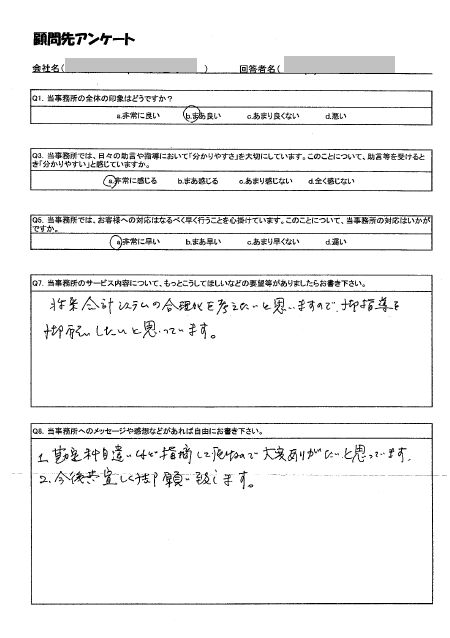 顧問先アンケート
会社名( ) 回答者名( )
Q1. 当事務所の全体の印象はどうですか?
a.非常に良い b.まあ良い c.あまり良くない d.悪い
Q3. 当事務所では、日々の助言や指導において「分かりやすさ」を大切にしています。このことについて、助言等を受けると
き「分かりやすい」と感じていますか。
a.非常に感じる b.まあ感じる c.あまり感じない d.全く感じない
Q5. 当事務所では、お客様への対応はなるべく早く行うことを心掛けています。このことについて、当事務所の対応はいかが
ですか。
a.非常に早い b.まあ早い c.あまり早くない d.遅い
Q7. 当事務所のサービス内容について、もっとこうしてほしいなどの要望等がありましたらお書き下さい。
将来会計システムの合理化を考えたいと思いますので、御指導を
御願いしたいと思っています。
Q8. 当事務所へのメッセージや感想などがあれば自由にお書き下さい。
1. 勘定科目違いなど指摘して頂けるので大変ありがたいと思っています。
2. 今後共宜しく御願い致します。